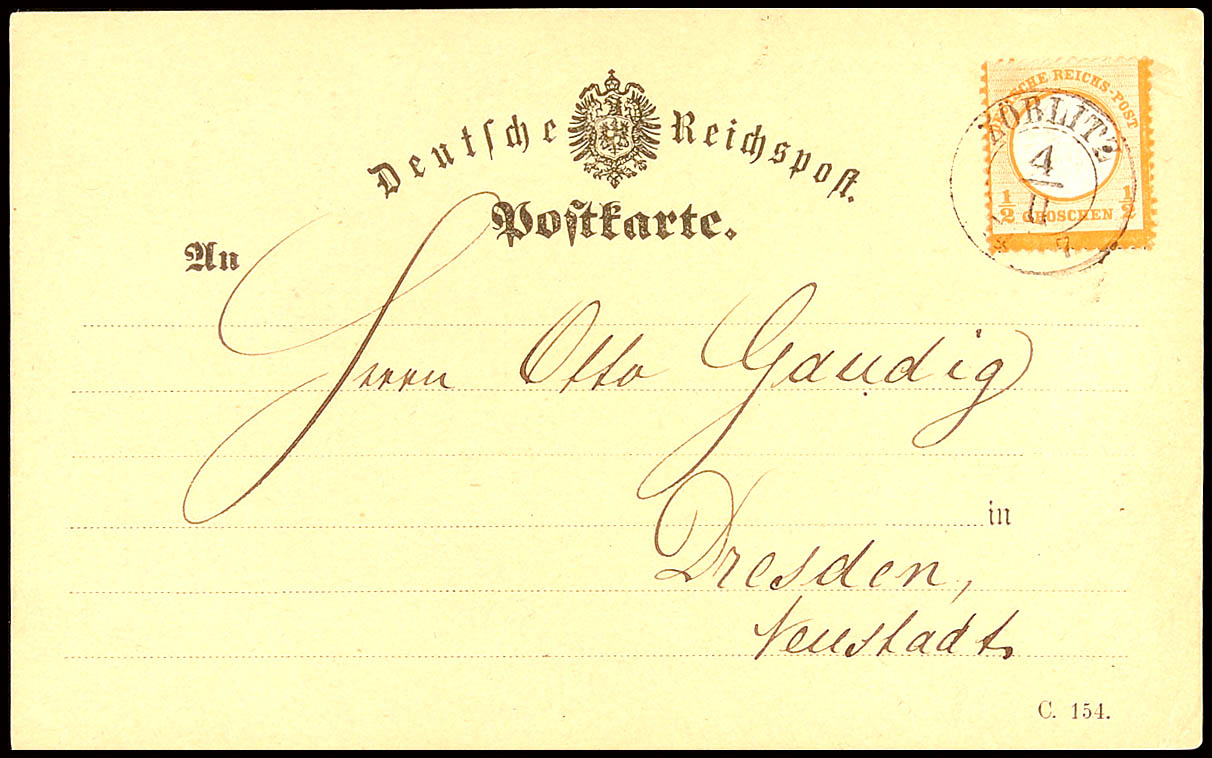 Deutsche Reichspost.
Postkarte.
DEUTSCHE REICHS-POST
ZÖBLITZ
4
II
7
½ GROSCHEN ½
An
Herrn Otto Gaudig
in
Dresden,
Neustadt.
C. 154.